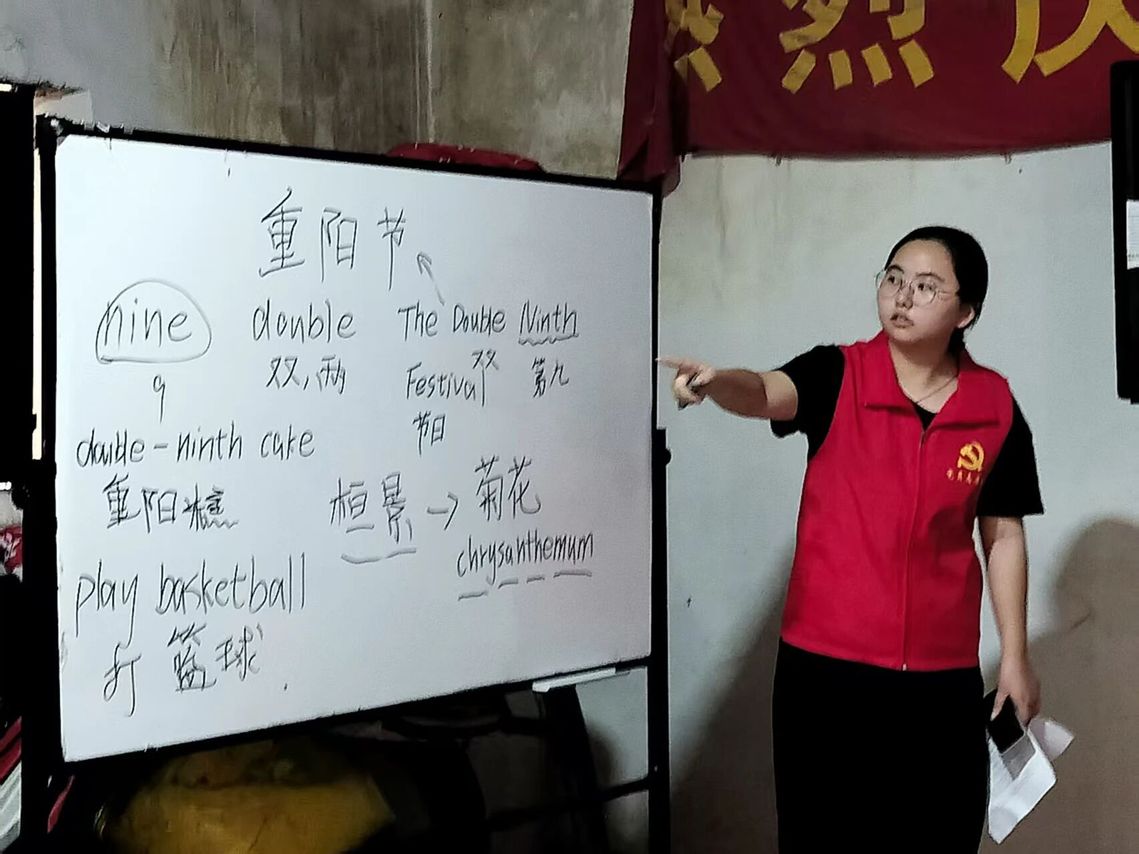 烈庆
重阳节
nine double The Double Ninth
9 双,两 Festival 双 第九
节日
double-ninth cake
重阳糕
桓景→菊花
chrysanthemum
play basketball
打篮球